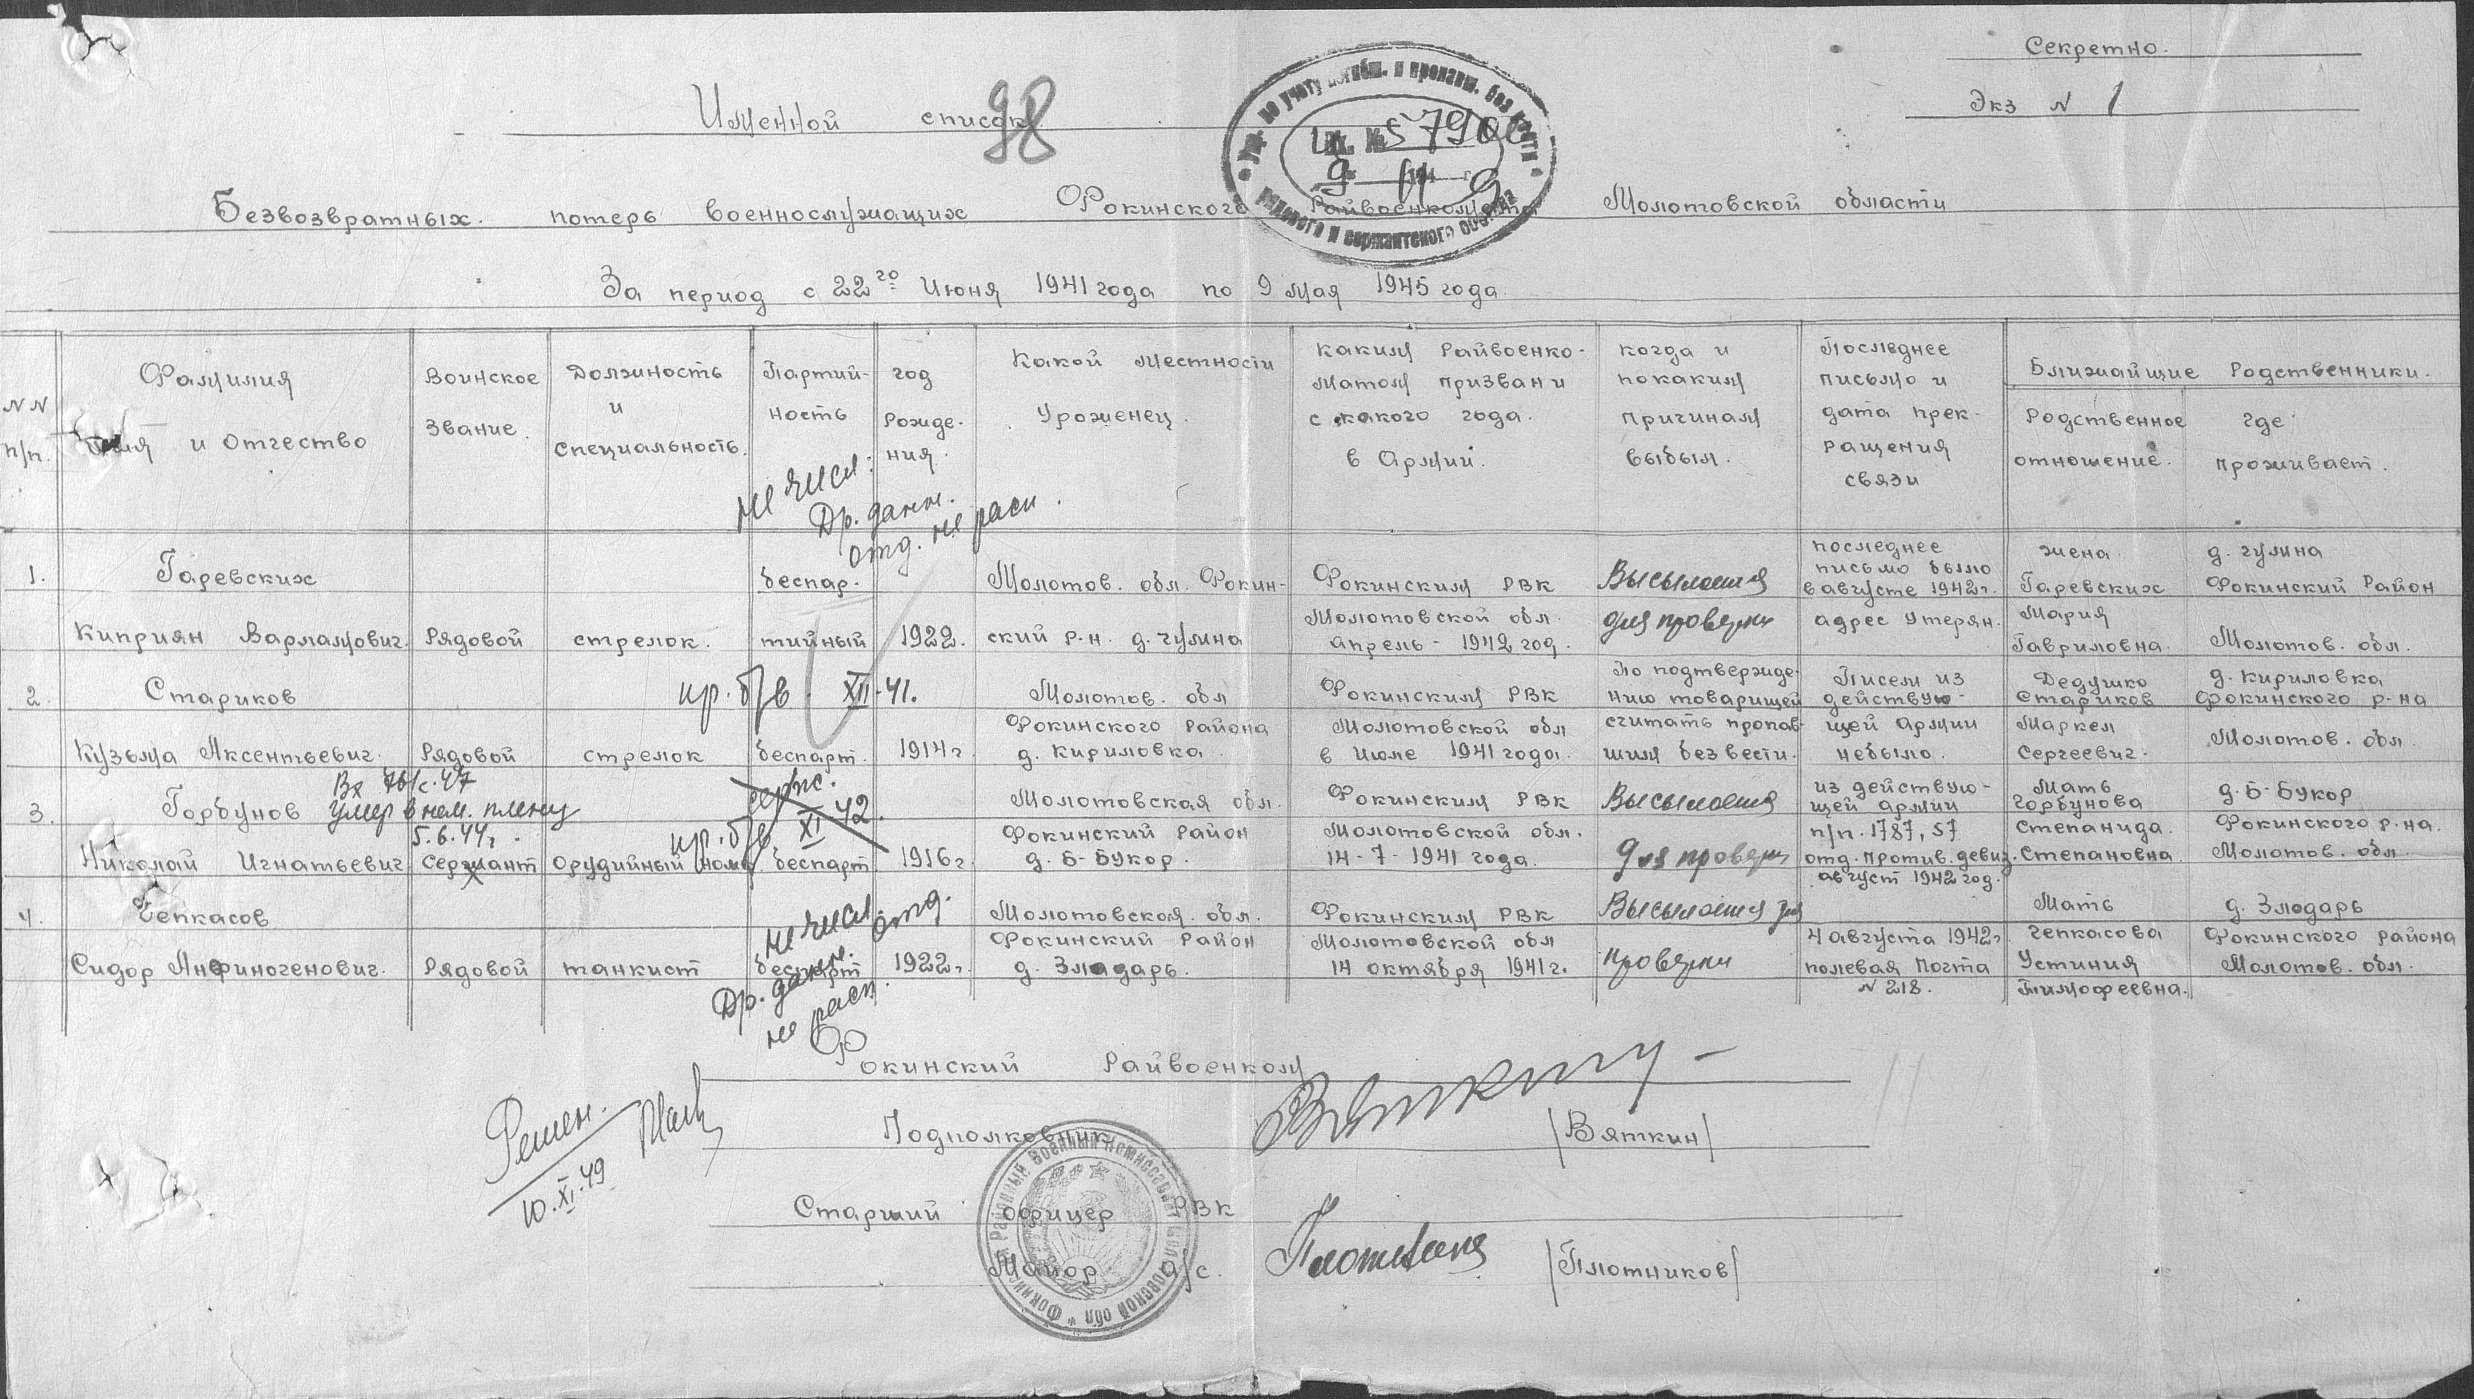 Секретно.
Экз № 1
Именной список
98
Упр. по учету погибш. и пропавш. без вести
рядового и сержантского состава
Вх. № 5790с
9 11 194 9
Безвозвратных. потерь военнослужащих Фокинского Райвоенкомата Молотовской области
За период с 22го Июня 1941 года по 9 мая 1945 года.
NN п/п.
Фамилия
имя и Отчество
Воинское
Звание.
Должность
и
специальность.
Партий-
ность
год
рожде-
ния.
Какой местности
Уроженец.
каким Райвоенко-
матом призван и
с какого года.
в Армии.
когда и
по каким
причинам
выбыл.
Последнее
письмо и
дата прек-
ращения
связи
Ближайшие Родственники.
Родственное
отношение.
где
проживает.
не числ.
Др. данн.
отд. не расп.
1.
Гаревских
Киприян Варламович.
Рядовой
стрелок.
беспар-
тийный
1922.
Молотов. обл. Фокин-
ский р-н. д. гулина
Фокинским РВК
Молотовской обл.
апрель - 1942 год.
Высылается
для проверки
последнее
письмо было
в августе 1942 г.
адрес утерян.
жена.
Гаревских
Мария
Гавриловна.
д. гулина
Фокинский Район
Молотов. обл.
2.
Стариков
Кузьма Аксентьевич.
Рядовой
стрелок
пр. б/в. XII-41.
беспарт.
1914 г.
Молотов. обл
Фокинского Района
д. Кириловка.
Фокинским РВК
Молотовской обл
в Июле 1941 года.
По подтвержде-
нию товарищей
считать пропав-
шим без вести.
Писем из
действую-
щей армии
небыло.
Дедушко
Стариков
Маркел
Сергеевич.
д. Кириловка
Фокинского р-на
Молотов. обл.
3.
Горбунов
Николай Игнатьевич
умер в нем. плену
5.6.44 г.
Сержант
Орудийный ном.
пр. б/в XI-42.
беспарт.
1916 г.
Молотовская обл.
Фокинский Район
д. Б-Букор.
Фокинским РВК
Молотовской обл.
14-7-1941 года.
Высылается
для проверки
из действую-
щей армии
п/п. 1787, 57
отд. против. девиз.
август 1942 год.
Мать
Горбунова
Степанида.
Степановна.
д. Б-Букор
Фокинского р-на.
Молотов. обл.
4.
Чепкасов
Сидор Анфиногенович.
Рядовой
танкист
не числ.
Др. данн. отд.
не расп.
беспарт
1922 г.
Молотовская. обл.
Фокинский Район
д. Злодарь.
Фокинским РВК
Молотовской обл
14 октября 1941 г.
Высылается для
проверки
4 августа 1942 г.
полевая Почта
№ 218.
Мать
Чепкасова
Устиния
Тимофеевна.
д. Злодарь
Фокинского района
Молотов. обл.
Фокинский Райвоенком
Подполковник
/Вяткин/
Старший офицер РВК
Майор а/с.
/Плотников/
Решен.
10.XI.49
Районный Военный Комиссариат